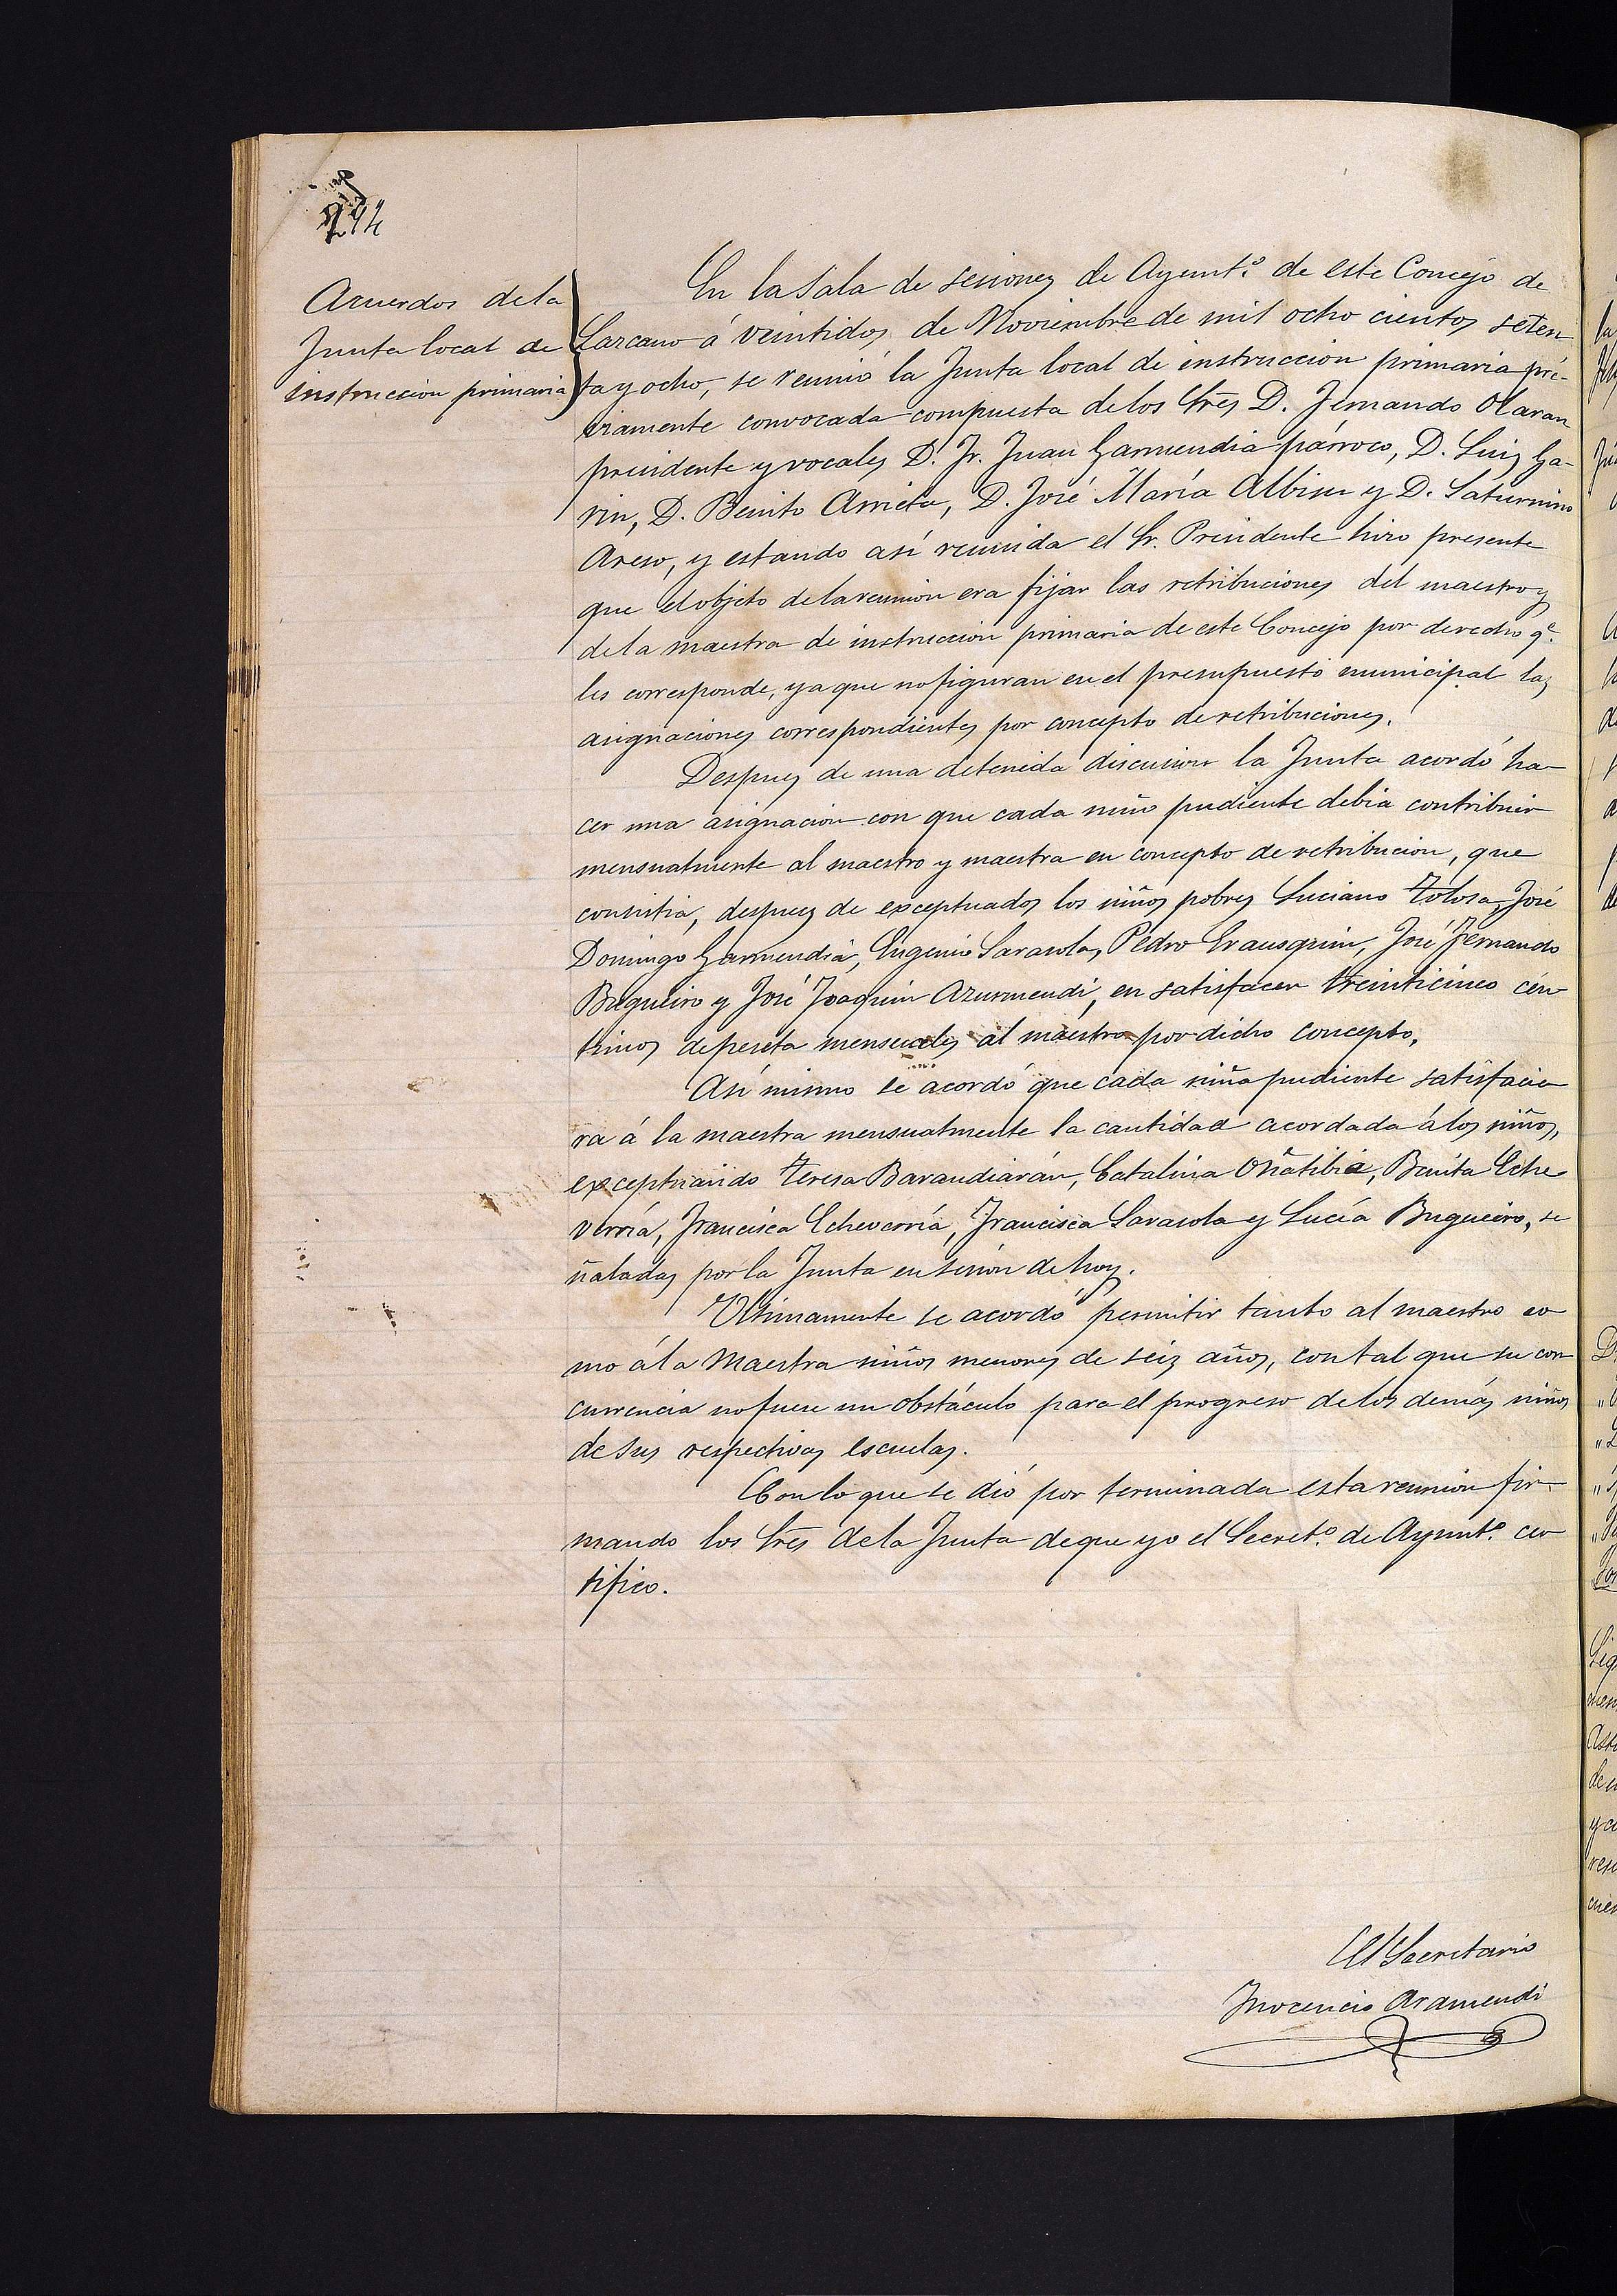 294
Acuerdos de la
Junta local de
instrucción primaria
En la Sala de sesiones de Ayunt.º de este Concejo de
Lazcano á veintidos de Noviembre de mil ocho cientos seten
ta y ocho, se reunió la Junta local de instrucción primaria pré-
viamente convocada compuesta de los Sres D. Fernando Olaran
presidente y vocales D. Fr. Juan Garmendia párroco, D. Luis Ga-
rin, D. Benito Arrieta, D. José María Albisu y D. Saturnino
Areso, y estando así reunida el Sr. Presidente hizo presente
que el objeto de la reunion era fijar las retribuciones del maestro y
de la maestra de instrucción primaria de este Concejo por derecho q.e
les corresponde, ya que no figuran en el presupuesto municipal las
asignaciones correspondientes por concepto de retribuciones.
Despues de una detenida discusion la Junta acordó ha
cer una asignacion con que cada niño pudiente debia contribuir
mensualmente al maestro y maestra en concepto de retribucion, que
consistia, despues de exceptuados los niños pobres Luciano Tolosa, José
Domingo Garmendia, Eugenio Sarasola, Pedro Erausquin, José Fernando
Bugueiro y José Joaquin Azurmendi, en satisfacer treinticinco cén
timos de peseta mensuales al maestro por dicho concepto.
Así mismo se acordó que cada niña pudiente satisfacie
ra á la maestra mensualmente la cantidad acordada á los niños,
exceptuando Teresa Barandiarán, Catalina Oñatibia, Benita Eche
verría, Francisca Echeverría, Francisca Sarasola y Lucía Bugueiro, se
ñaladas por la Junta en sesion de hoy.
Ultimamente se acordó permitir tanto al maestro co
mo á la Maestra niños menores de seis años, con tal que su con
currencia no fuese un obstáculo para el progreso de los demás niños
de sus respectivas escuelas.
Con lo que se dió por terminada esta reunion fir
mando los Sres de la Junta de que yo el Secret.º de Ayunt.º cer
tifico.
El Secretario
Inocencio Aramendi